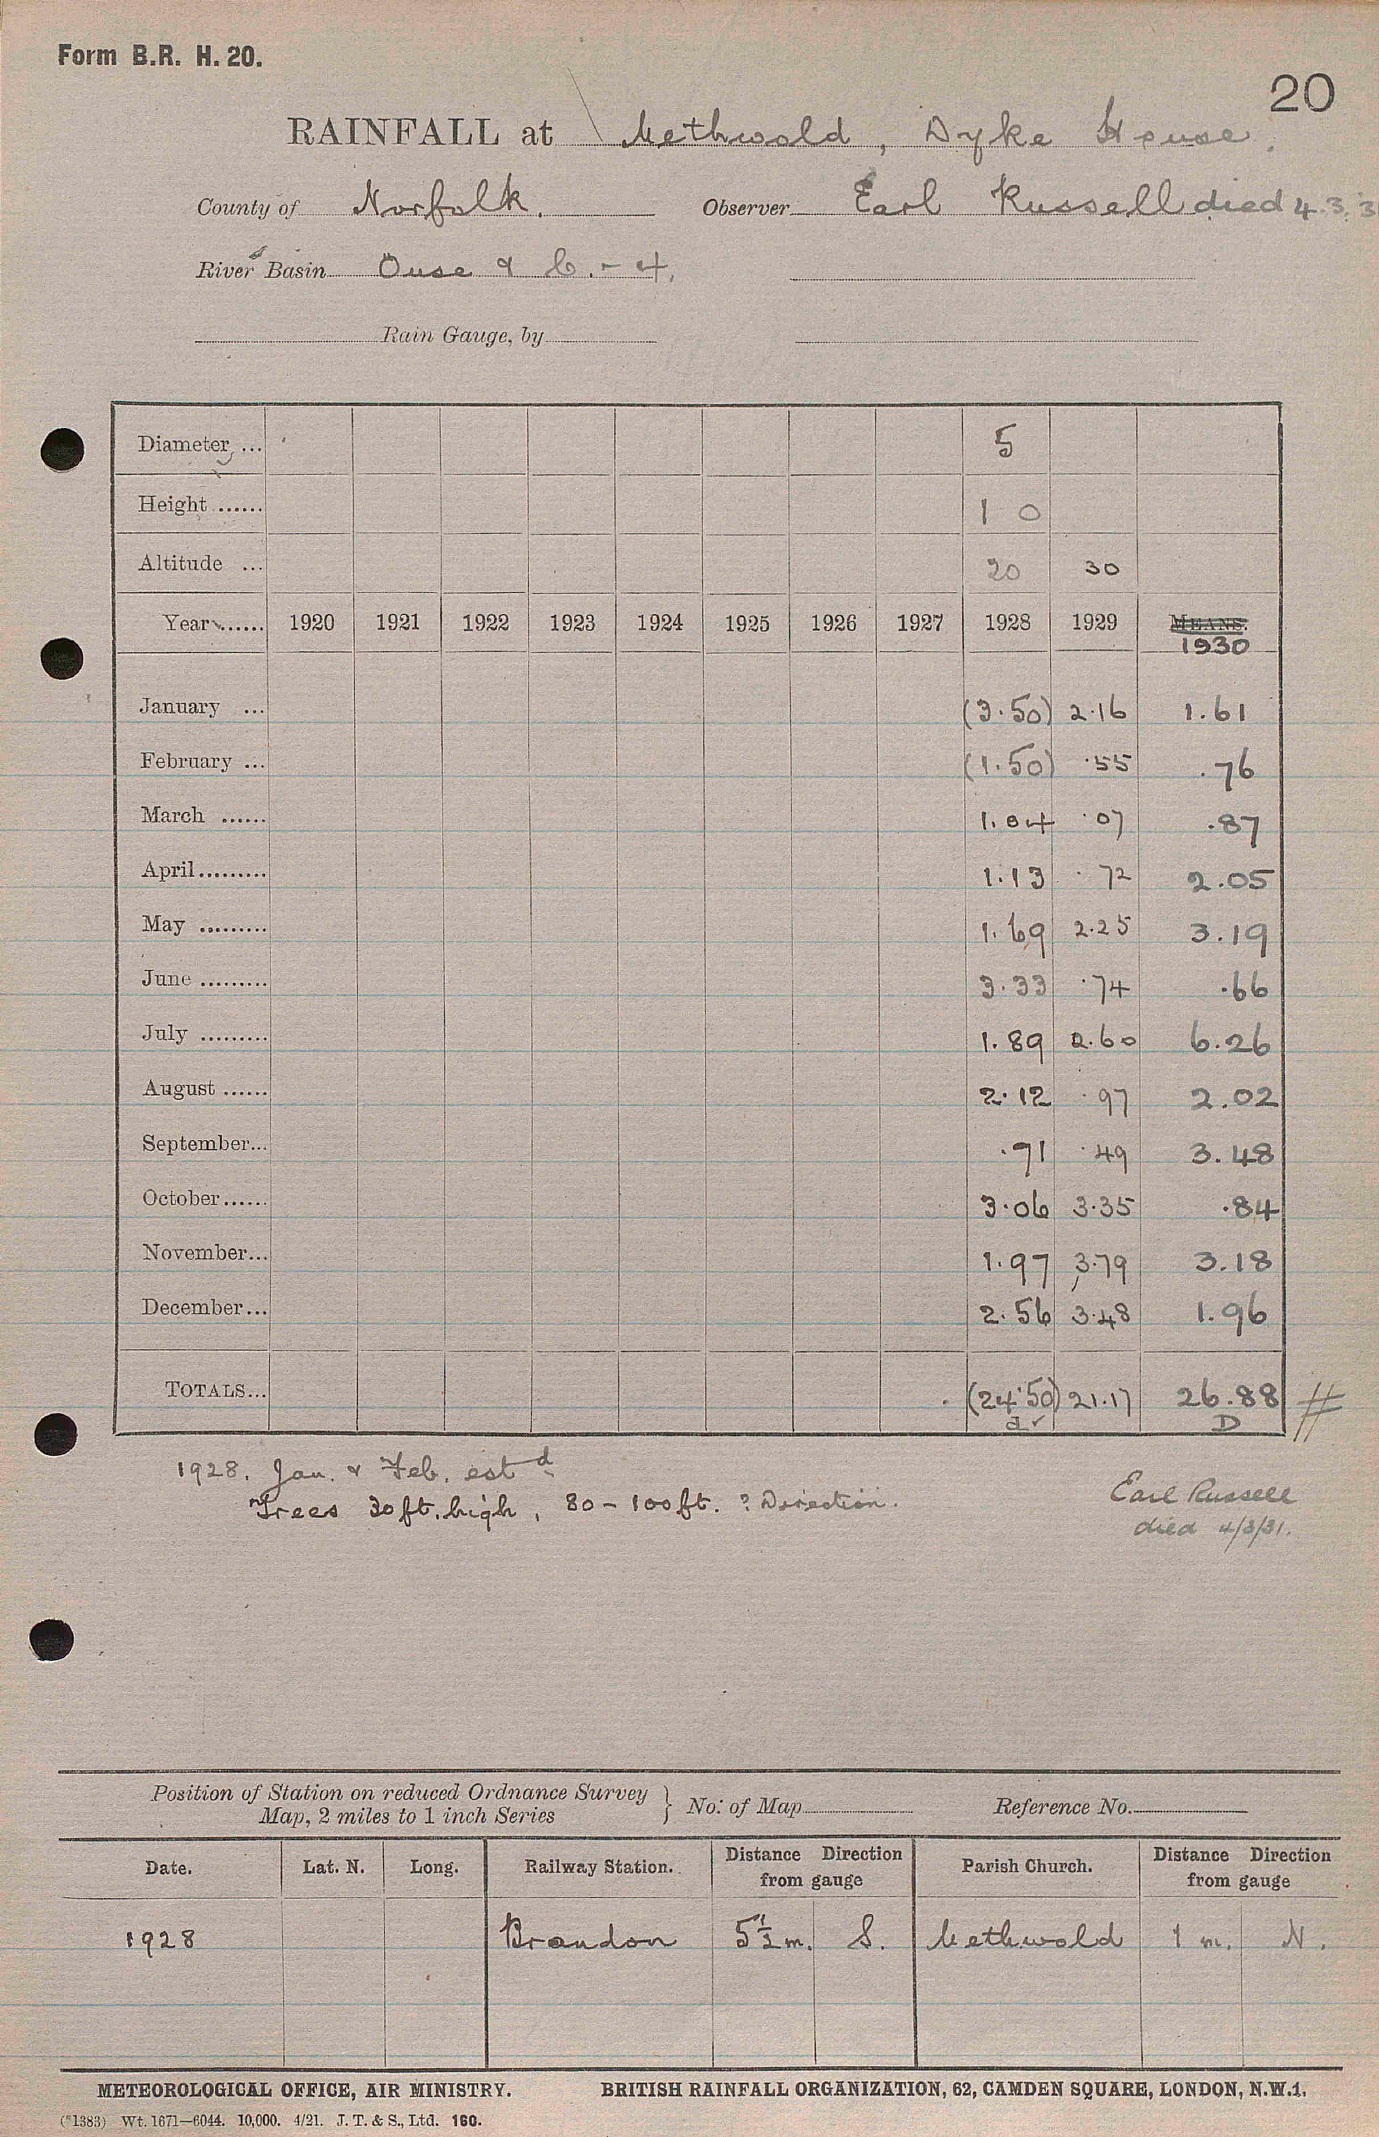 Form B.R. H. 20.
20
RAINFALL at Methwold, Dyke House.
County of Norfolk. Observer Earl Russell died 4.3.3
River Basin Ouse & C. - 4.
Rain Gauge, by
Diameter ... 5
Height ...... 1 0
Altitude ... 20 30
Year ...... 1920 1921 1922 1923 1924 1925 1926 1927 1928 1929 MEANS.
1930
January ... (3.50) 2.16 1.61
February ... (1.50) .55 .76
March ...... 1.04 .07 .87
April ......... 1.13 .72 2.05
May ......... 1.69 2.25 3.19
June ......... 3.33 .74 .66
July ......... 1.89 2.60 6.26
August ...... 2.12 .97 2.02
September... .71 .49 3.48
October...... 3.06 3.35 .84
November... 1.97 3.79 3.18
December... 2.56 3.48 1.96
TOTALS... (24.50) 21.17 26.88 #
D
1928. Jan. & Feb. estd.
Trees 30 ft. high, 80 - 100 ft. ? Direction.
Earl Russell
died 4/3/31.
Position of Station on reduced Ordnance Survey
Map, 2 miles to 1 inch Series } No. of Map Reference No.
Date. Lat. N. Long. Railway Station. Distance Direction from gauge Parish Church. Distance Direction from gauge
1928 Brandon 5½ m. S. Methwold 1 m. N.
METEOROLOGICAL OFFICE, AIR MINISTRY. BRITISH RAINFALL ORGANIZATION, 62, CAMDEN SQUARE, LONDON, N.W.1.
(*1383) Wt. 1671—6044. 10,000. 4/21. J. T. & S., Ltd. 160.